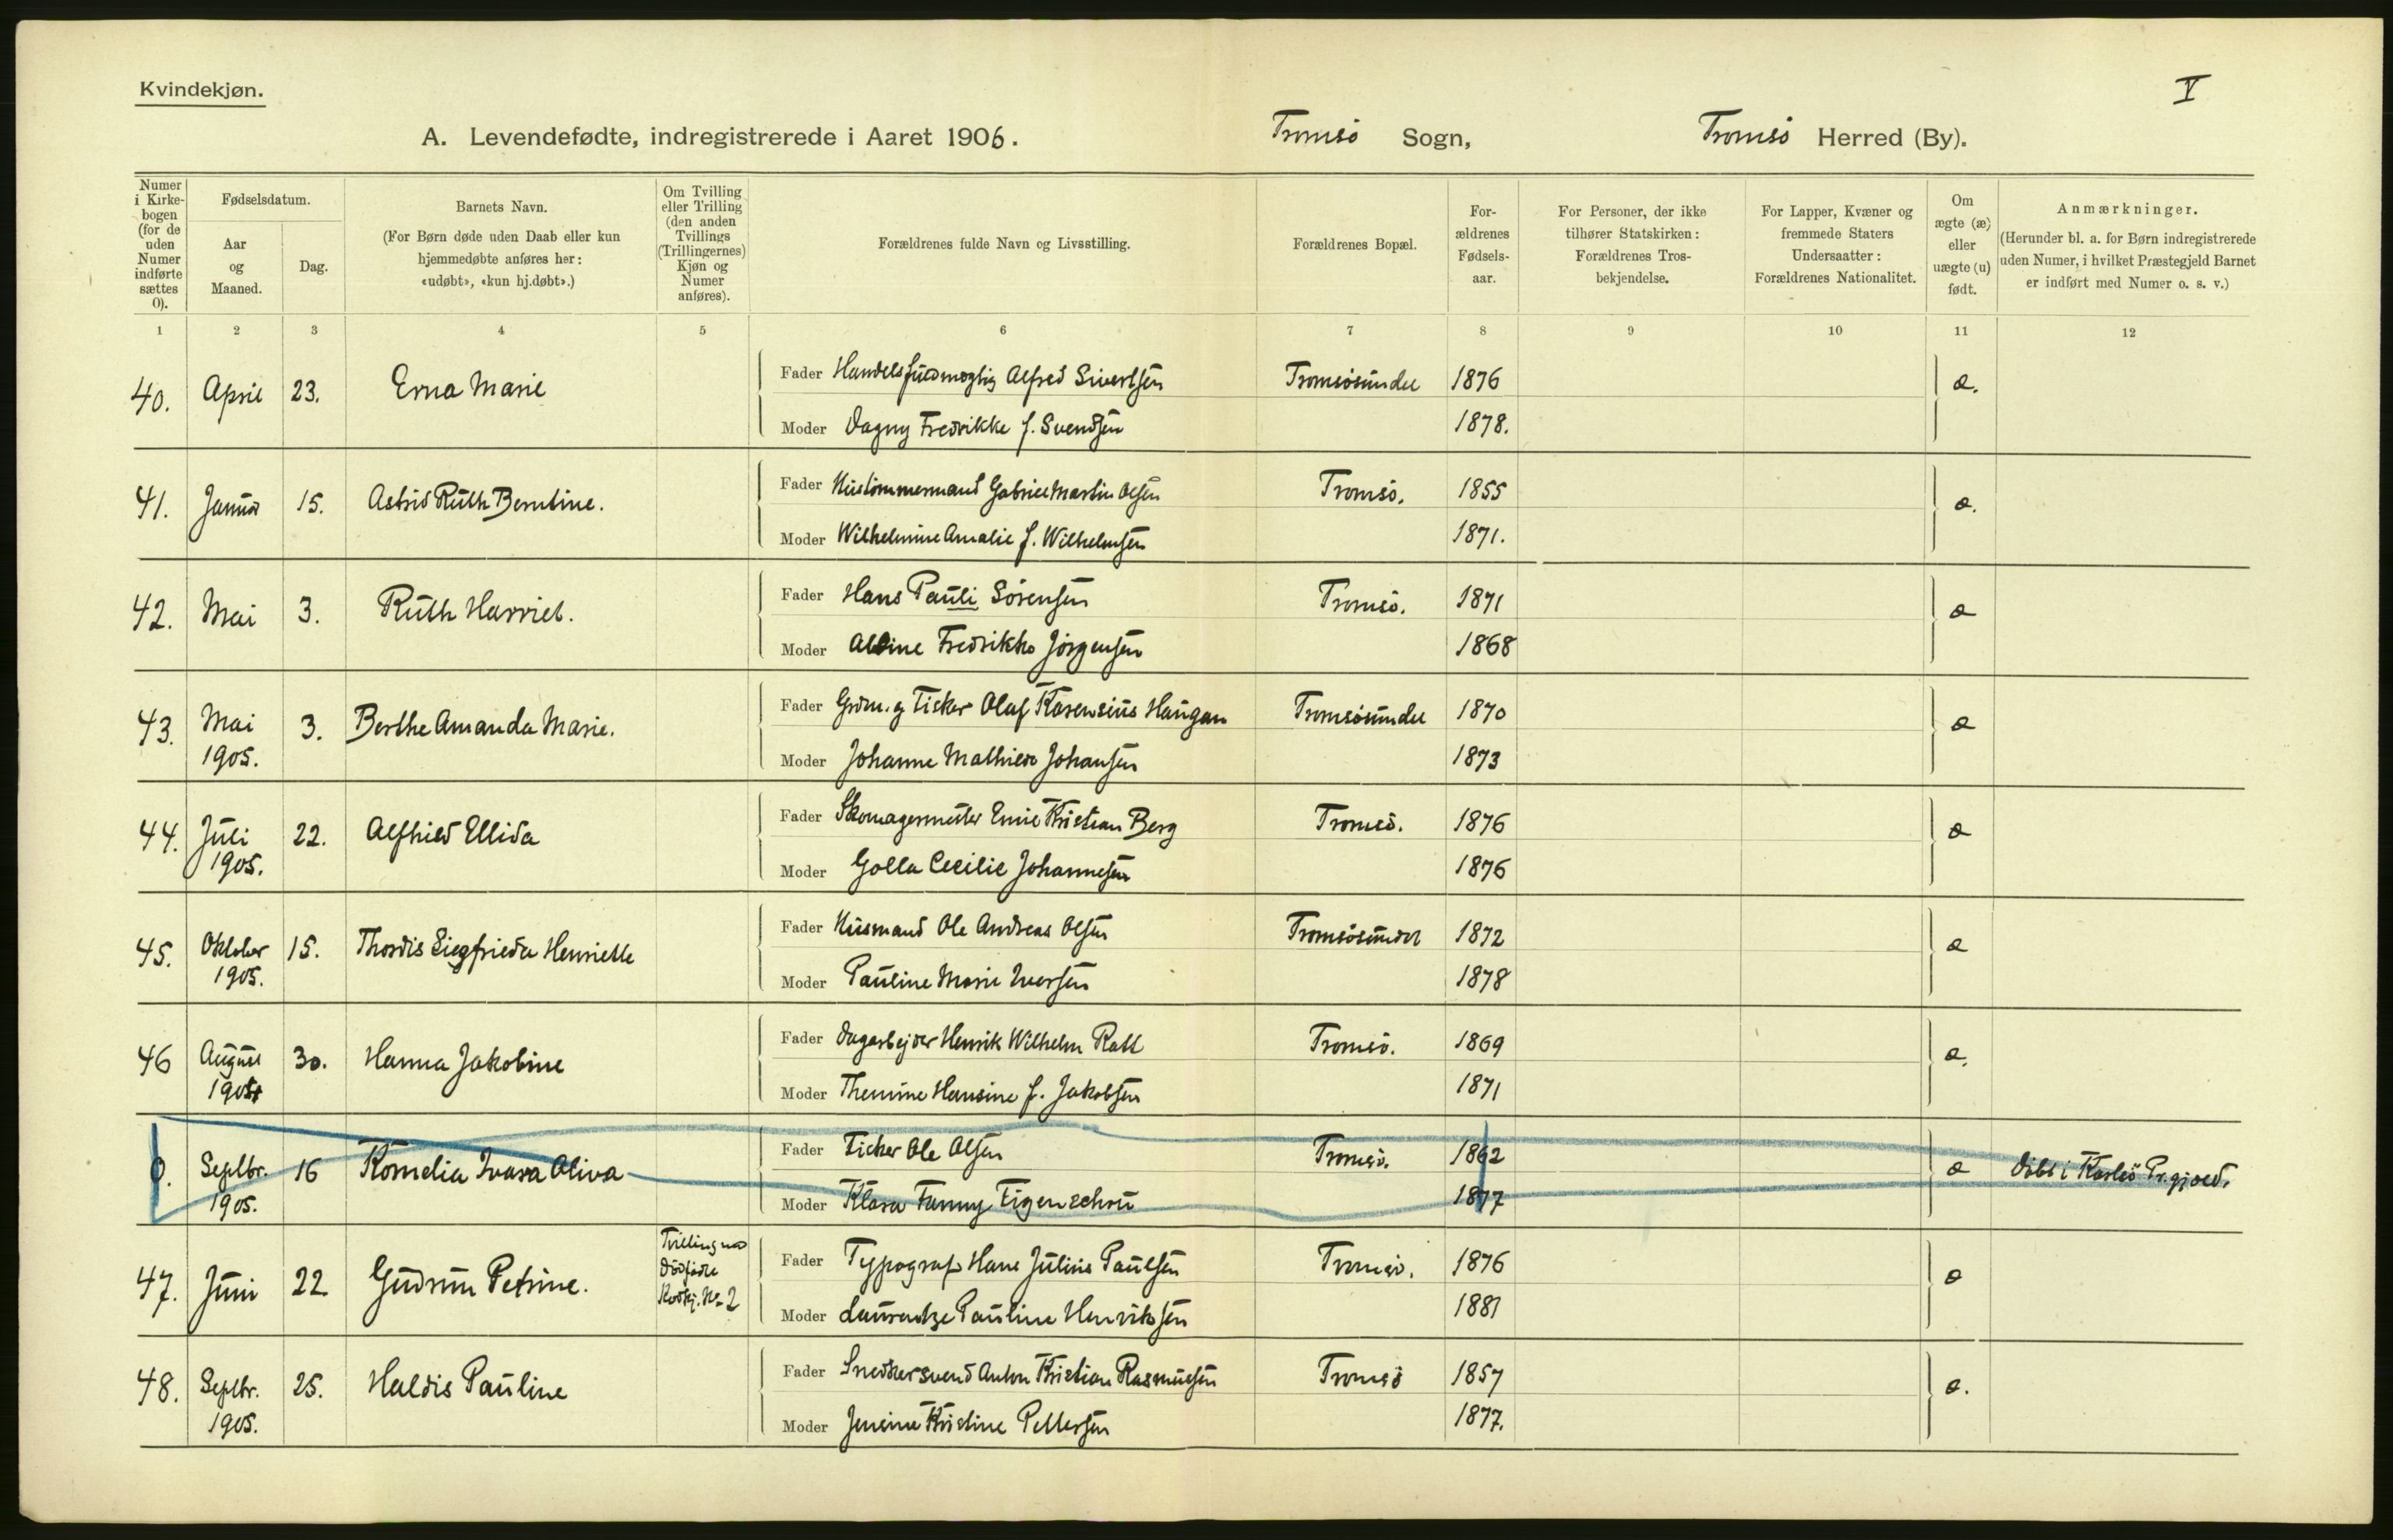 Kvindekjøn.
V
A. Levendefødte, indregistrerede i Aaret 1906. Tromsö Sogn, Tromsö Herred (By).
Numer i Kirkebogen (for de uden Numer indførte sættes 0).
Fødselsdatum.
Aar og Maaned.
Dag.
Barnets Navn.
(For Børn døde uden Daab eller kun hjemmedøbte anføres her: «udøbt», «kun hj.døbt».)
Om Tvilling eller Trilling (den anden Tvillings (Trillingernes) Kjøn og Numer anføres).
Forældrenes fulde Navn og Livsstilling.
Forældrenes Bopæl.
For-ældrenes Fødsels-aar.
For Personer, der ikke tilhører Statskirken: Forældrenes Tros-bekjendelse.
For Lapper, Kvæner og fremmede Staters Undersaatter: Forældrenes Nationalitet.
Om ægte (æ) eller uægte (u) født.
Anmærkninger.
(Herunder bl. a. for Børn indregistrerede uden Numer, i hvilket Præstegjeld Barnet er indført med Numer o. s. v.)
1 2 3 4 5 6 7 8 9 10 11 12
40. April 23. Erna Marie Fader Handelsfuldmægtig Alfred Sivertsen Tromsösundet 1876 æ.
Moder Dagny Fredrikke f. Svendsen 1878.
41. Januar 15. Astrid Ruth Berntine. Fader Hustömmermand Gabriel Martin Olsen Tromsö. 1855 æ.
Moder Wilhelmine Amalie f. Wilhelmsen 1871.
42. Mai 3. Ruth Harriet. Fader Hans Pauli Sörensen Tromsö. 1871 æ
Moder Aline Fredrikke Jörgensen 1868
43. Mai 1905. 3. Berthe Amanda Marie. Fader Grdm. og Fisker Olaf Karensius Haugan Tromsösundet 1870 æ
Moder Johanne Mathilde Johansen 1873
44. Juli 1905. 22. Alfhild Ellida Fader Skomagermester Emil Kristian Berg Tromsö. 1876 æ
Moder Golla Cecilie Johannesen 1876
45. Oktober 1905. 15. Thordis Siegfrieda Henriette Fader Husmand Ole Andreas Olsen Tromsösundet 1872 æ
Moder Pauline Marie Iversen 1878
46 August 30. Hanna Jakobine Fader Dagarbejder Henrik Wilhelm Tromsö. 1869 æ.
Moder Hansine f. Jakobsen 1871
0. Septbr. 1905. 16 Kornelia Ivara Oliva Fader Fisker Ole Olsen Tromsö. 1862 æ Döbt i Karlsö Pr.gjæld.
Moder Klara Fanny Figenschou 1877
47. Juni 22 Gudrun Petrine. Tvilling med dödfödte No 2 Fader Typograf Hans Julius Paulsen Tromsö. 1876 æ
Moder Laurentze Pauline Henriksen 1881
48. Septbr. 1905. 25. Haldis Pauline Fader Snedkersvend Anton Kristian Rasmussen Tromsö 1857 æ.
Moder Jensine Kristine Pettersen 1877.